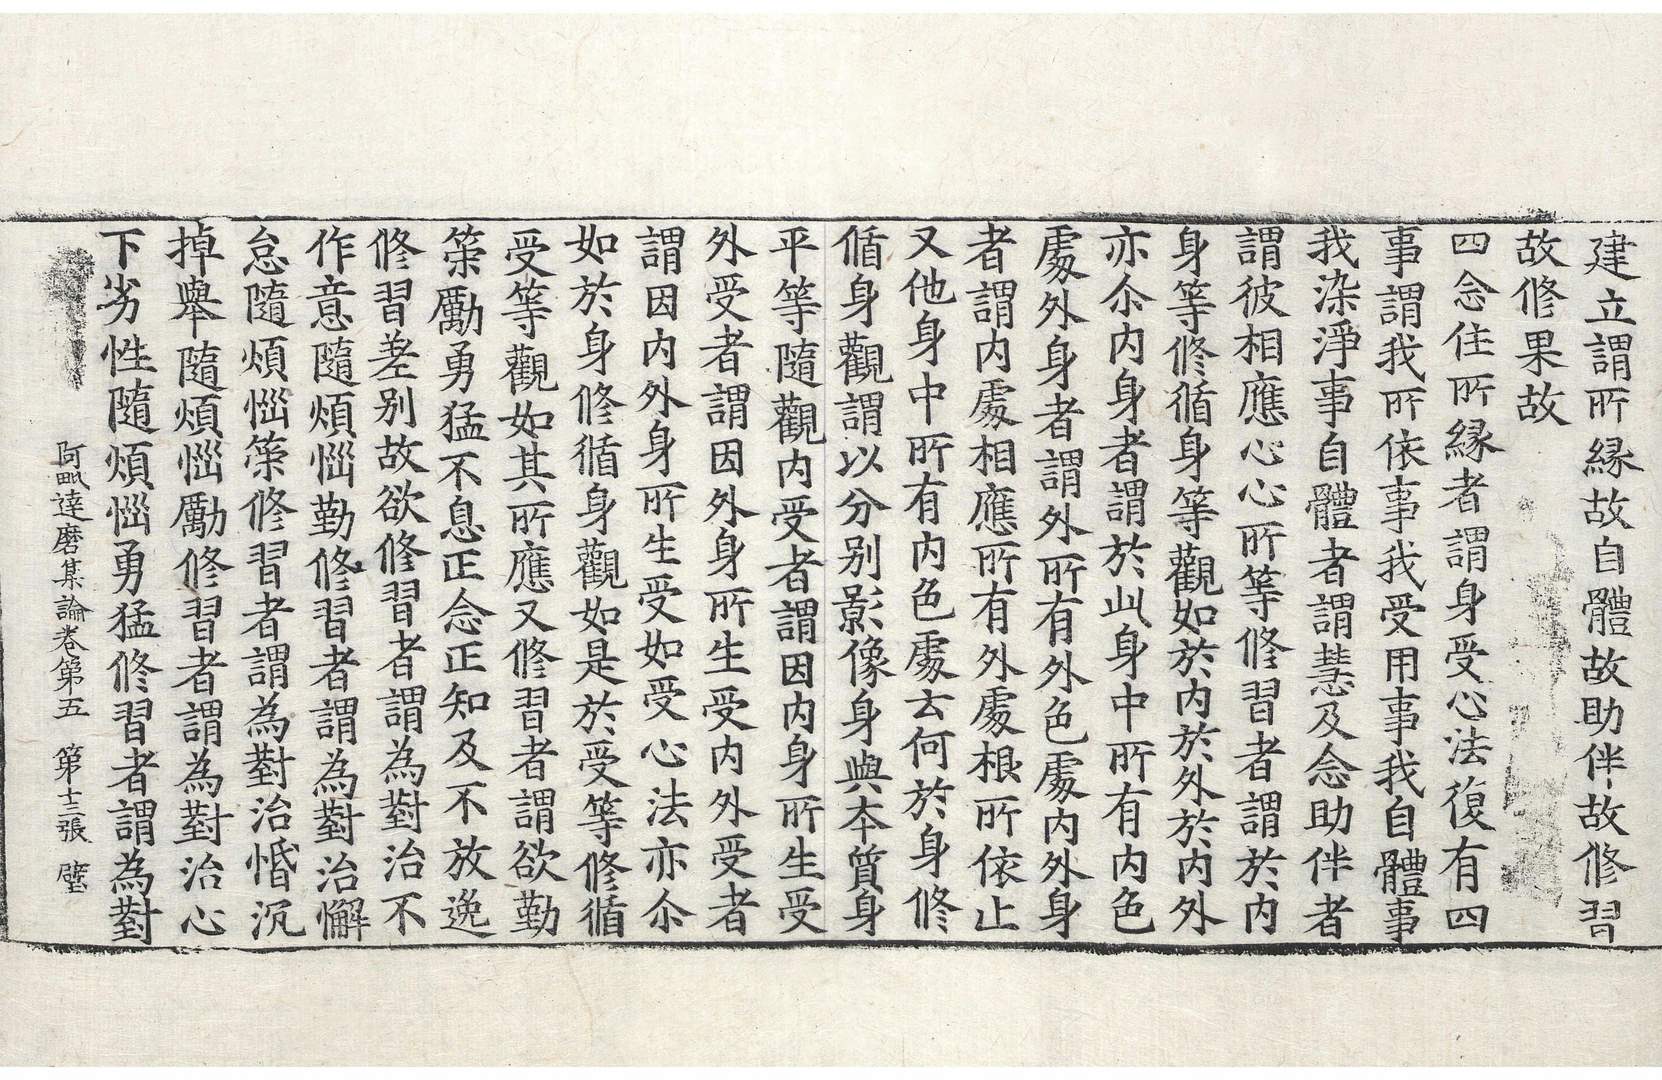 建立謂所縁故自體故助伴故修習
故修果故
四念住所縁者謂身受心法復有四
事謂我所依事我受用事我自體事
我染淨事自體者謂慧及念助伴者
謂彼相應心心所等修習者謂於内
身等修循身等觀如於内於外於内外
亦尒内身者謂於此身中所有内色
處外身者謂外所有外色處内外身
者謂内處相應所有外處根所依止
又他身中所有内色處去何於身修
循身觀謂以分别影像身與本質身
平等隨觀内受者謂因内身所生受
外受者謂因外身所生受内外受者
謂因内外身所生受如受心法亦尒
如於身修循身觀如是於受等修循
受等觀如其所應又修習者謂欲勤
策勵勇猛不息正念正知及不放逸
修習差别故欲修習者謂為對治不
作意隨煩惱勤修習者謂為對治懈
怠隨煩惱策修習者謂為對治惛沉
掉舉隨煩惱勵修習者謂為對治心
下劣性隨煩惱勇猛修習者謂為對
阿毗達磨集論卷第五 第十三張 璧